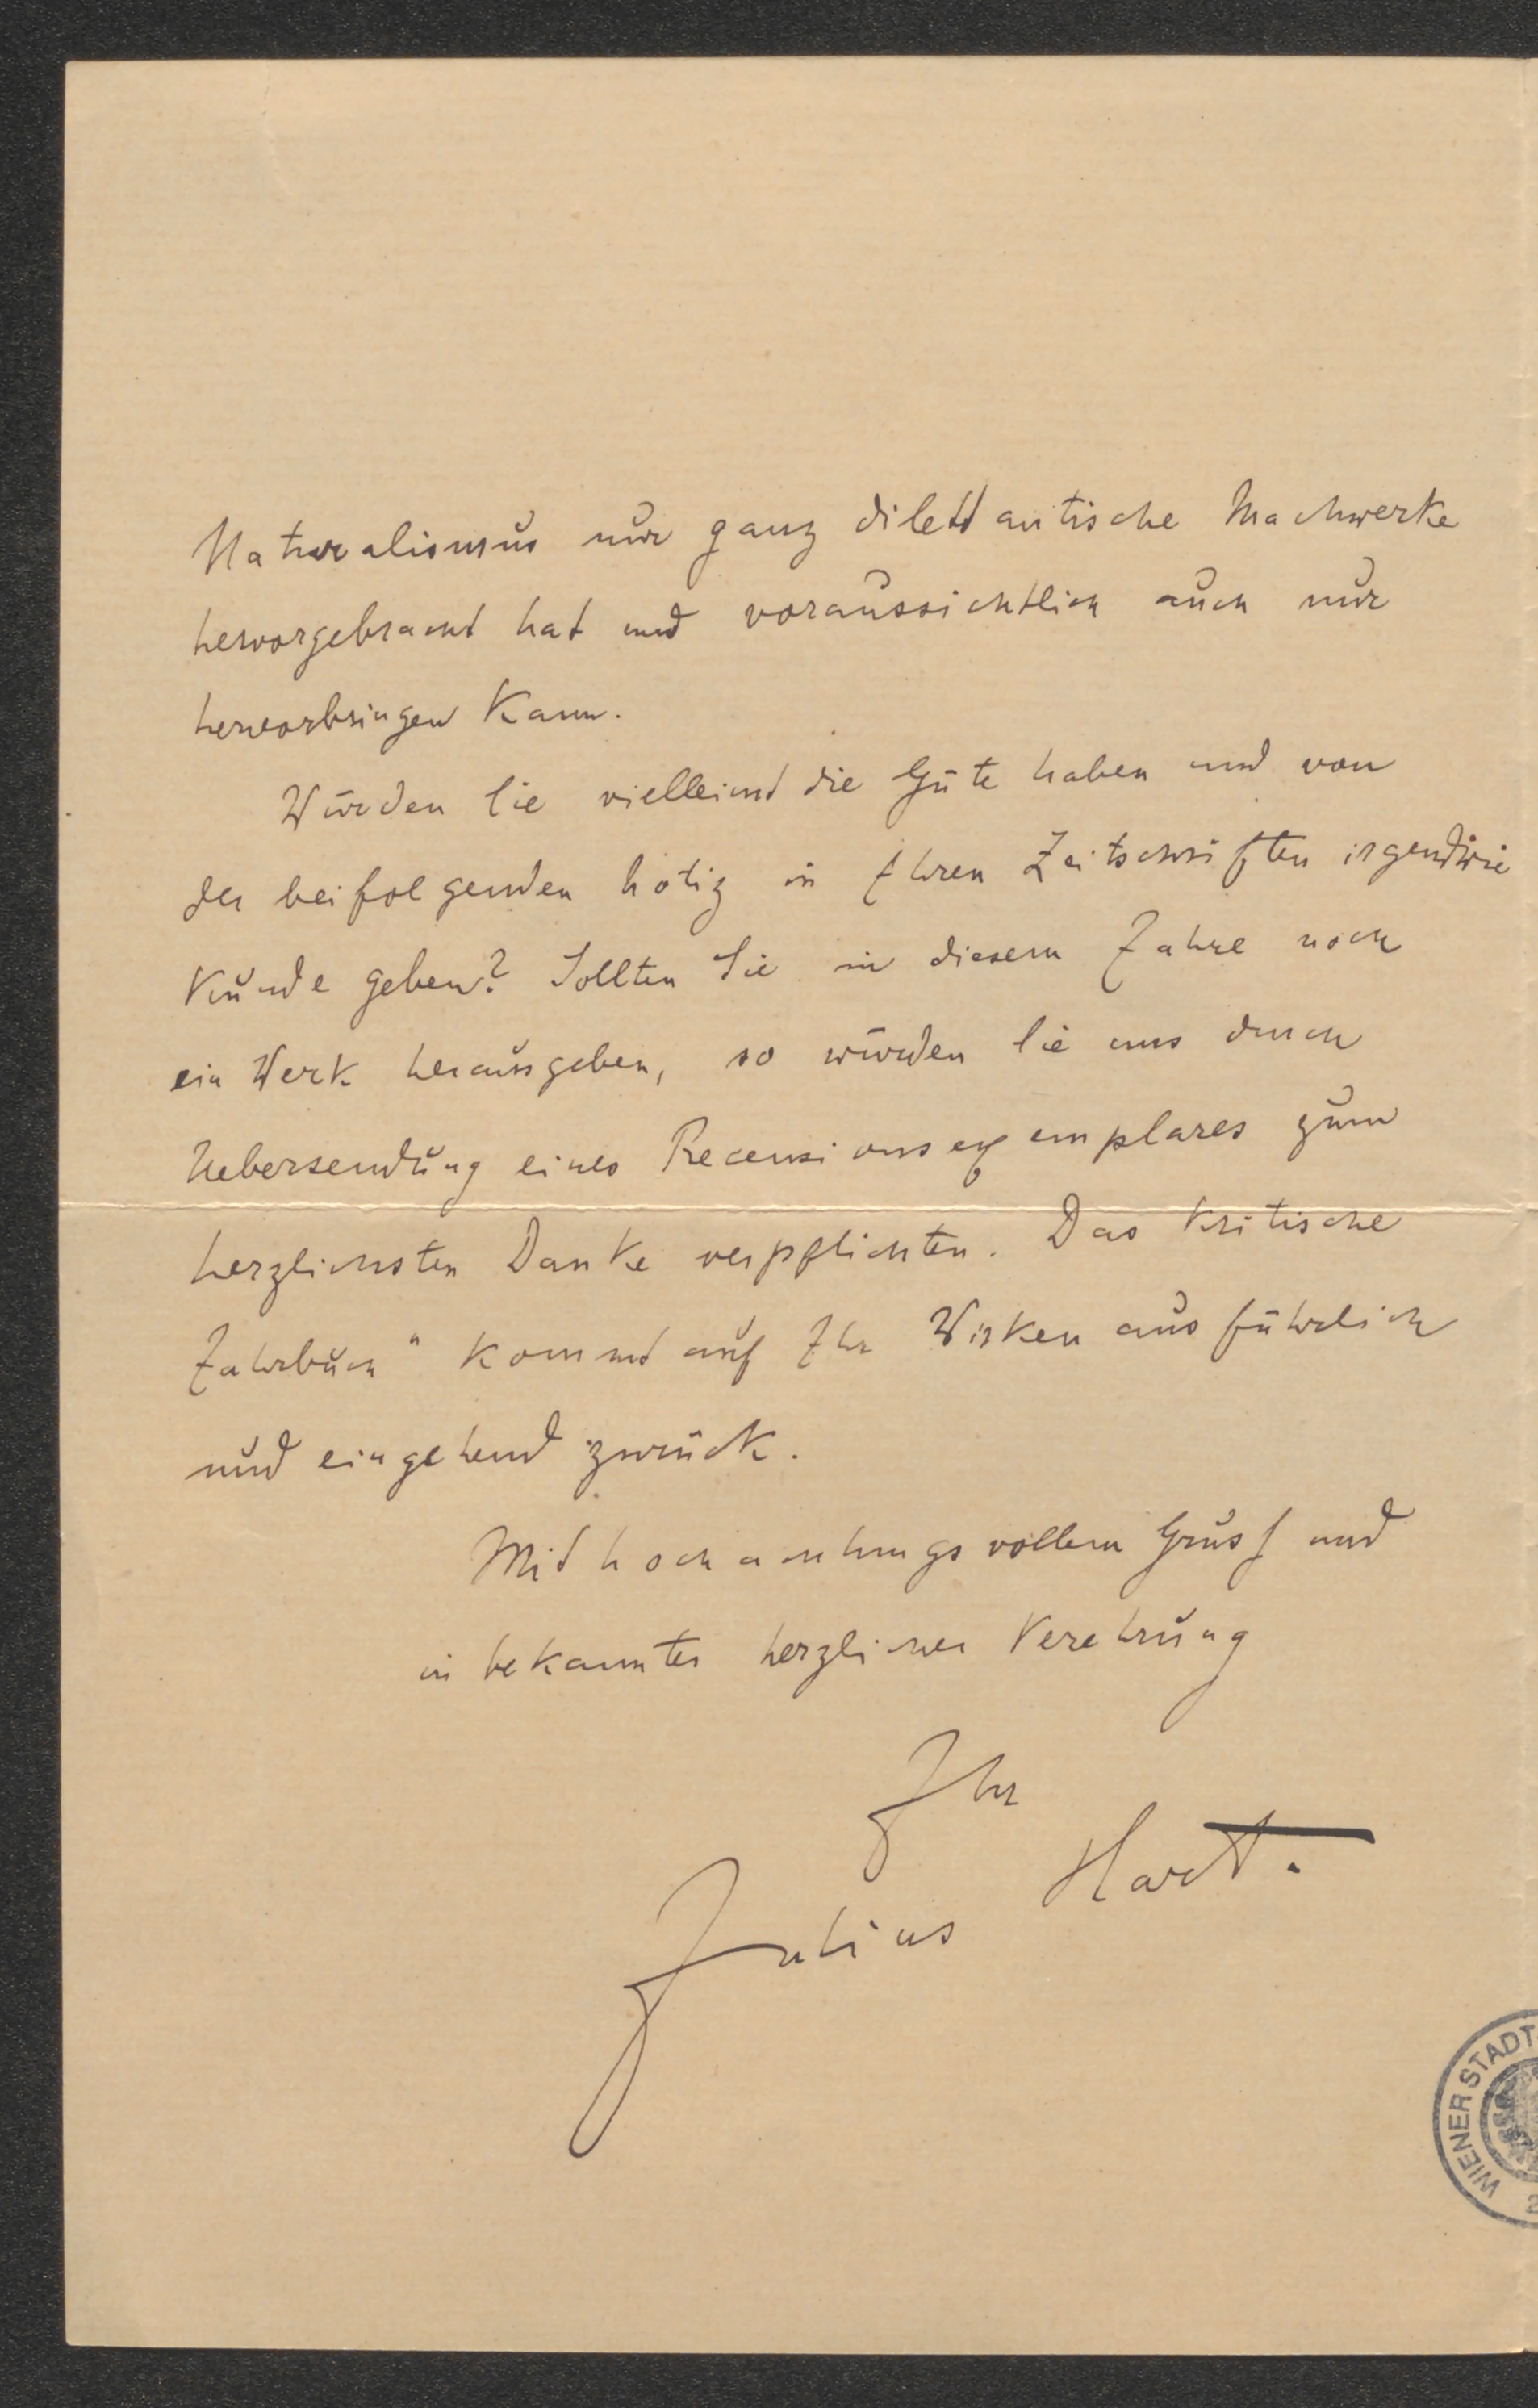 Naturalismus nur ganz dilettantische Machwerke
hervorgebracht hat und voraussichtlich auch nur
hervorbringen kann.
Würden Sie vielleicht die Güte haben und von
der beifolgenden Notiz in Ihren Zeitschriften irgendwie
Kunde geben? Sollten Sie in diesem Jahre noch
ein Werk herausgeben, so würden Sie uns durch
Uebersendung eines Recensionsexemplares zum
herzlichsten Danke verpflichten. Das Kritische
Jahrbuch“ kommt auf Ihr Wirken ausführlich
und eingehend zurück.
Mit hochachtungsvollem Gruss und
in bekannter herzlicher Verehrung
Ihr
Julius Hart.
WIENER STADT